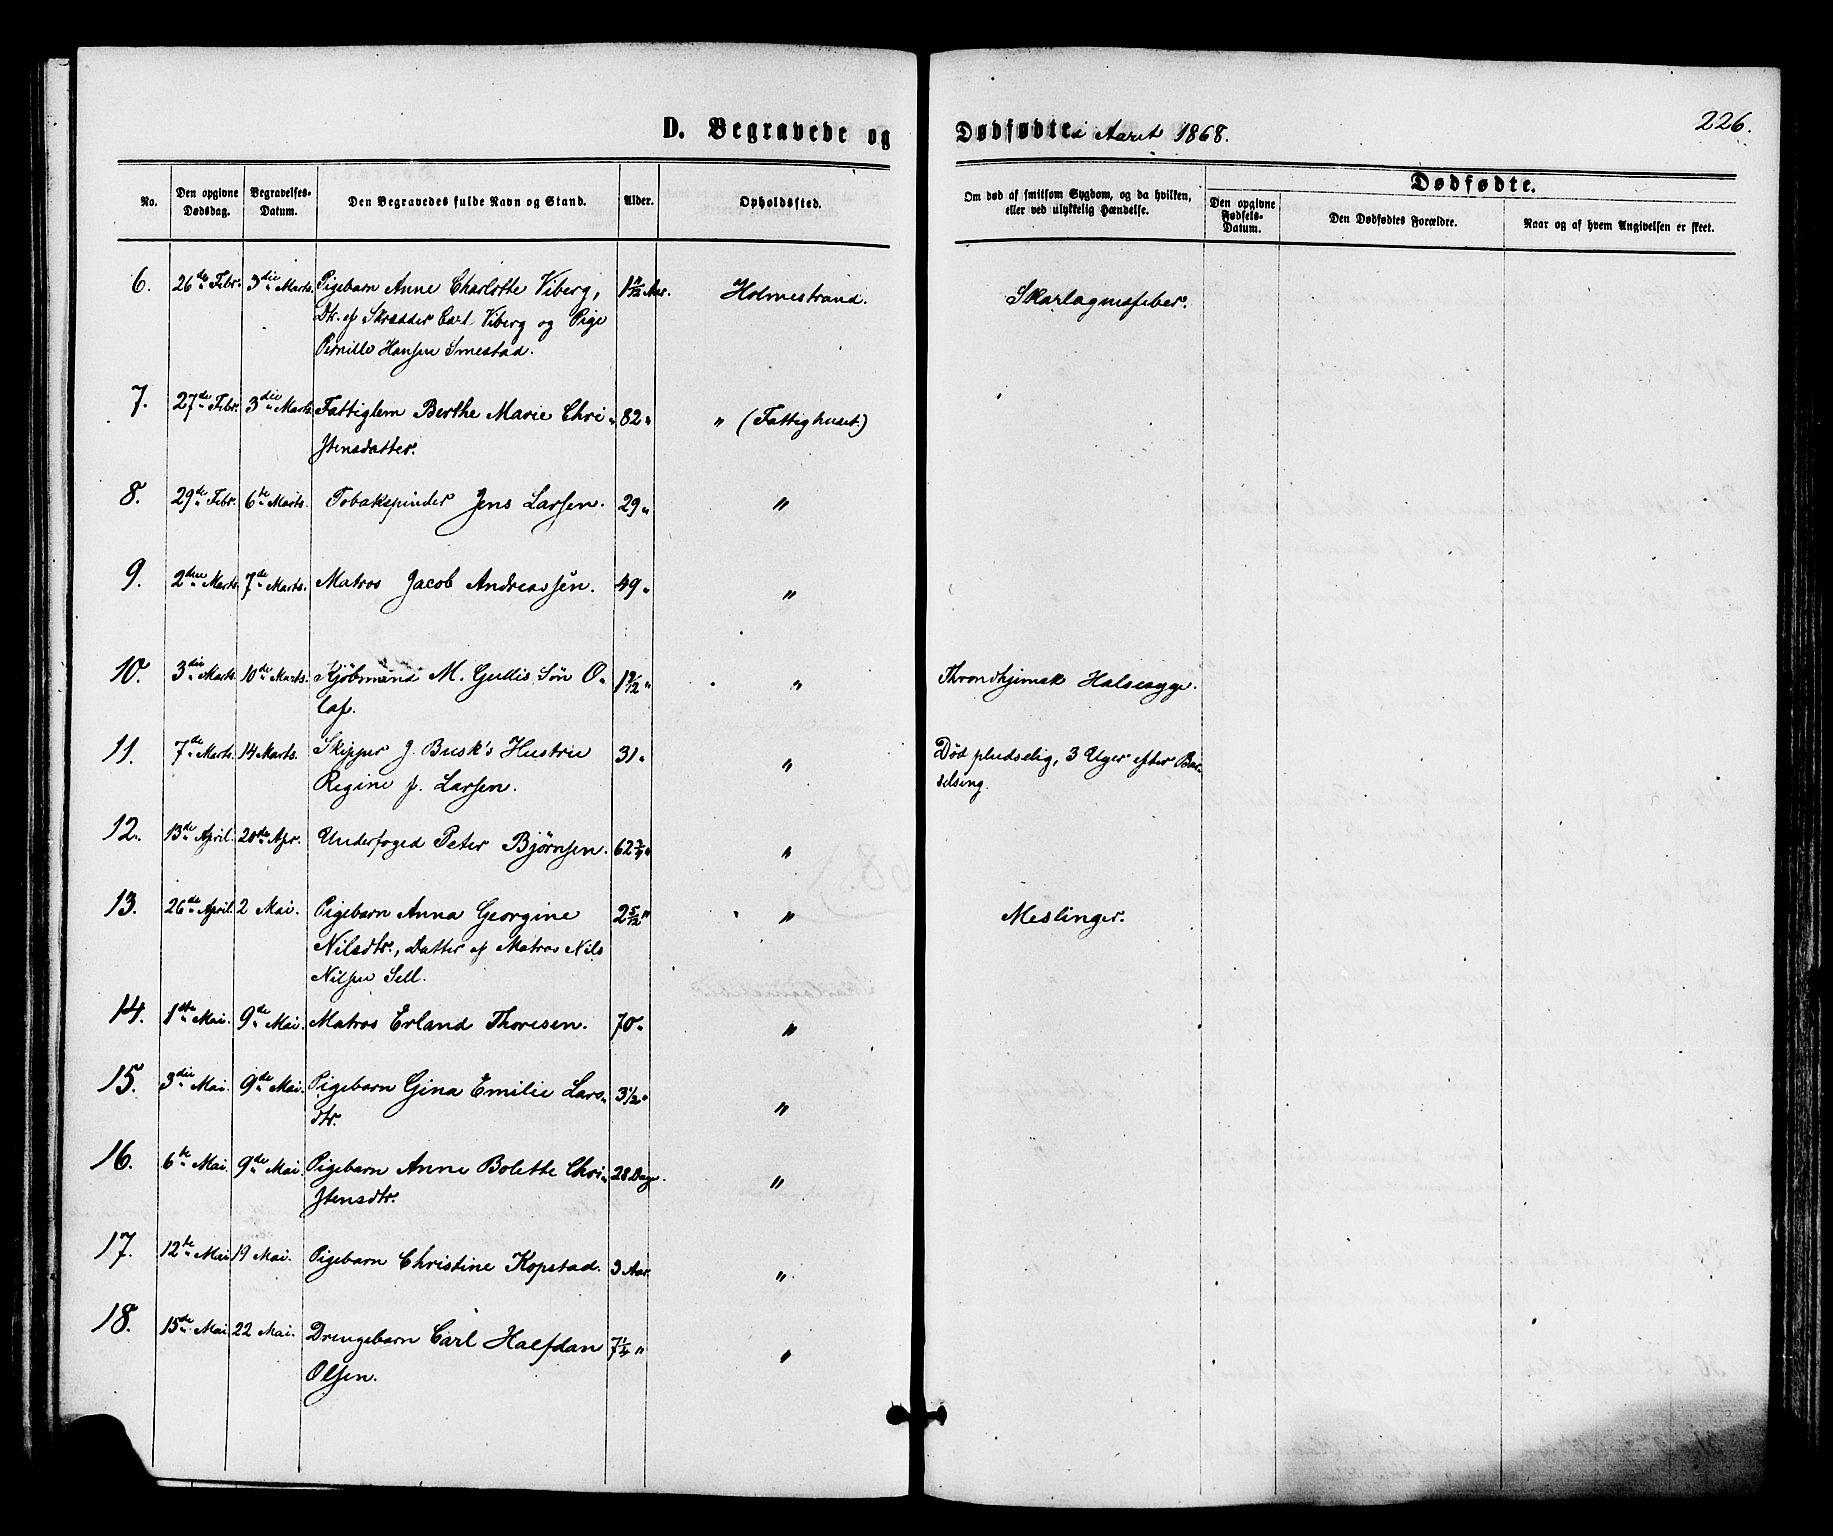 D. Begravede og Dødfødte i Aaret 1868. 226.
No. Den opgivne Dødsdag. Begravelses-Datum. Den Begravedes fulde Navn og Stand. Alder. Opholdssted. Om død af smitsom Sygdom, og da hvilken, eller ved ulykkelig Hændelse. Dødfødte.
Den opgivne Fødsels-Datum. Den Dødfødtes Forældre. Naar og af hvem Angivelsen er skeet.
6. 26de Febr. 3die Marts. Pigebarn Anne Charlotte Viberg, Aar. Holmestrand. Skarlagensfeber.
Dtr. af Skrædder Carl Viberg og Pige
Pernille Hansen Smestad.
7. 27de Febr. 3die Marts. Fattiglem Berthe Marie Chri- 82 " " (Fattighuset.)
stensdatter.
8. 29de Febr. 6te Marts. Tobakspinder Jens Larsen. 29 " "
9. 2den Marts. 7de Marts. Matros Jacob Andreassen. 49 " "
10. 3die Marts. 10de Marts. Kjøbmand M. Gullis Søn O- 1 9/12 " " Throndhjemsk Halssyge.
laf.
11. 7de Marts. 14 Marts. Skipper J. Busk's Hustru 31 " " Død pludselig, 3 Uger efter Bar-
Regine f. Larsen. selseng.
12. 13de April. 20de Apr. Underfoged Peter Bjørnsen. 62 3/4 " "
13. 26de April. 2 Mai. Pigebarn Anna Georgine 2 5/12 " " Meslinger.
Nilsdtr., Datter af Matros Nils
Nilsen Sell.
14. 1ste Mai. 9de Mai. Matros Erland Thoresen. 70 " "
15. 3die Mai. 9de Mai. Pigebarn Gina Emilie Lars- 3 1/2 " "
dtr.
16. 6te Mai. 9de Mai. Pigebarn Anne Bolette Chri- 28 Dage. "
stensdtr.
17. 12te Mai 19 Mai. Pigebarn Christine Kopstad. 3 Aar. "
18. 15de Mai. 22 Mai. Drengebarn Carl Halfdan 7 1/4 " "
Olsen.